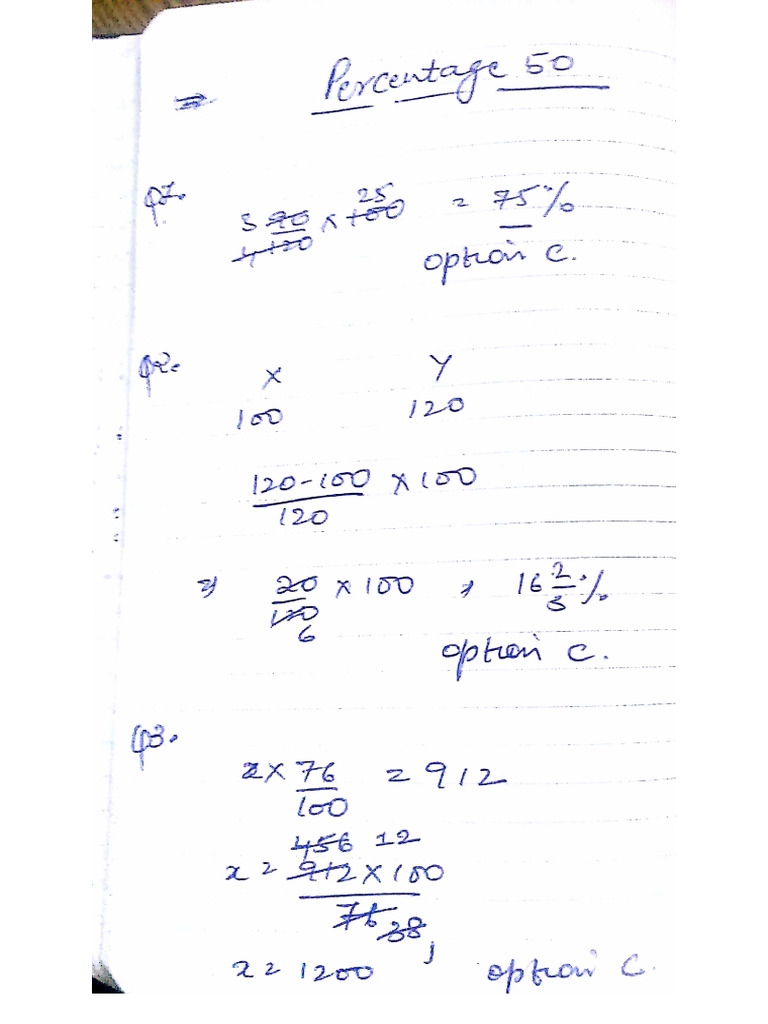 ⇒ Percentage 50
Q1.
3 90/4 120 × 25 100 = 75%
option C.
Q2.
X Y
100 120
120-100/120 × 100
⇒ 20/120 6 × 100 ⇒ 16 2/3 %
option C.
Q3.
x × 76/100 = 912
456 12
x = 912 × 100/76 38 1
x = 1200 option C.